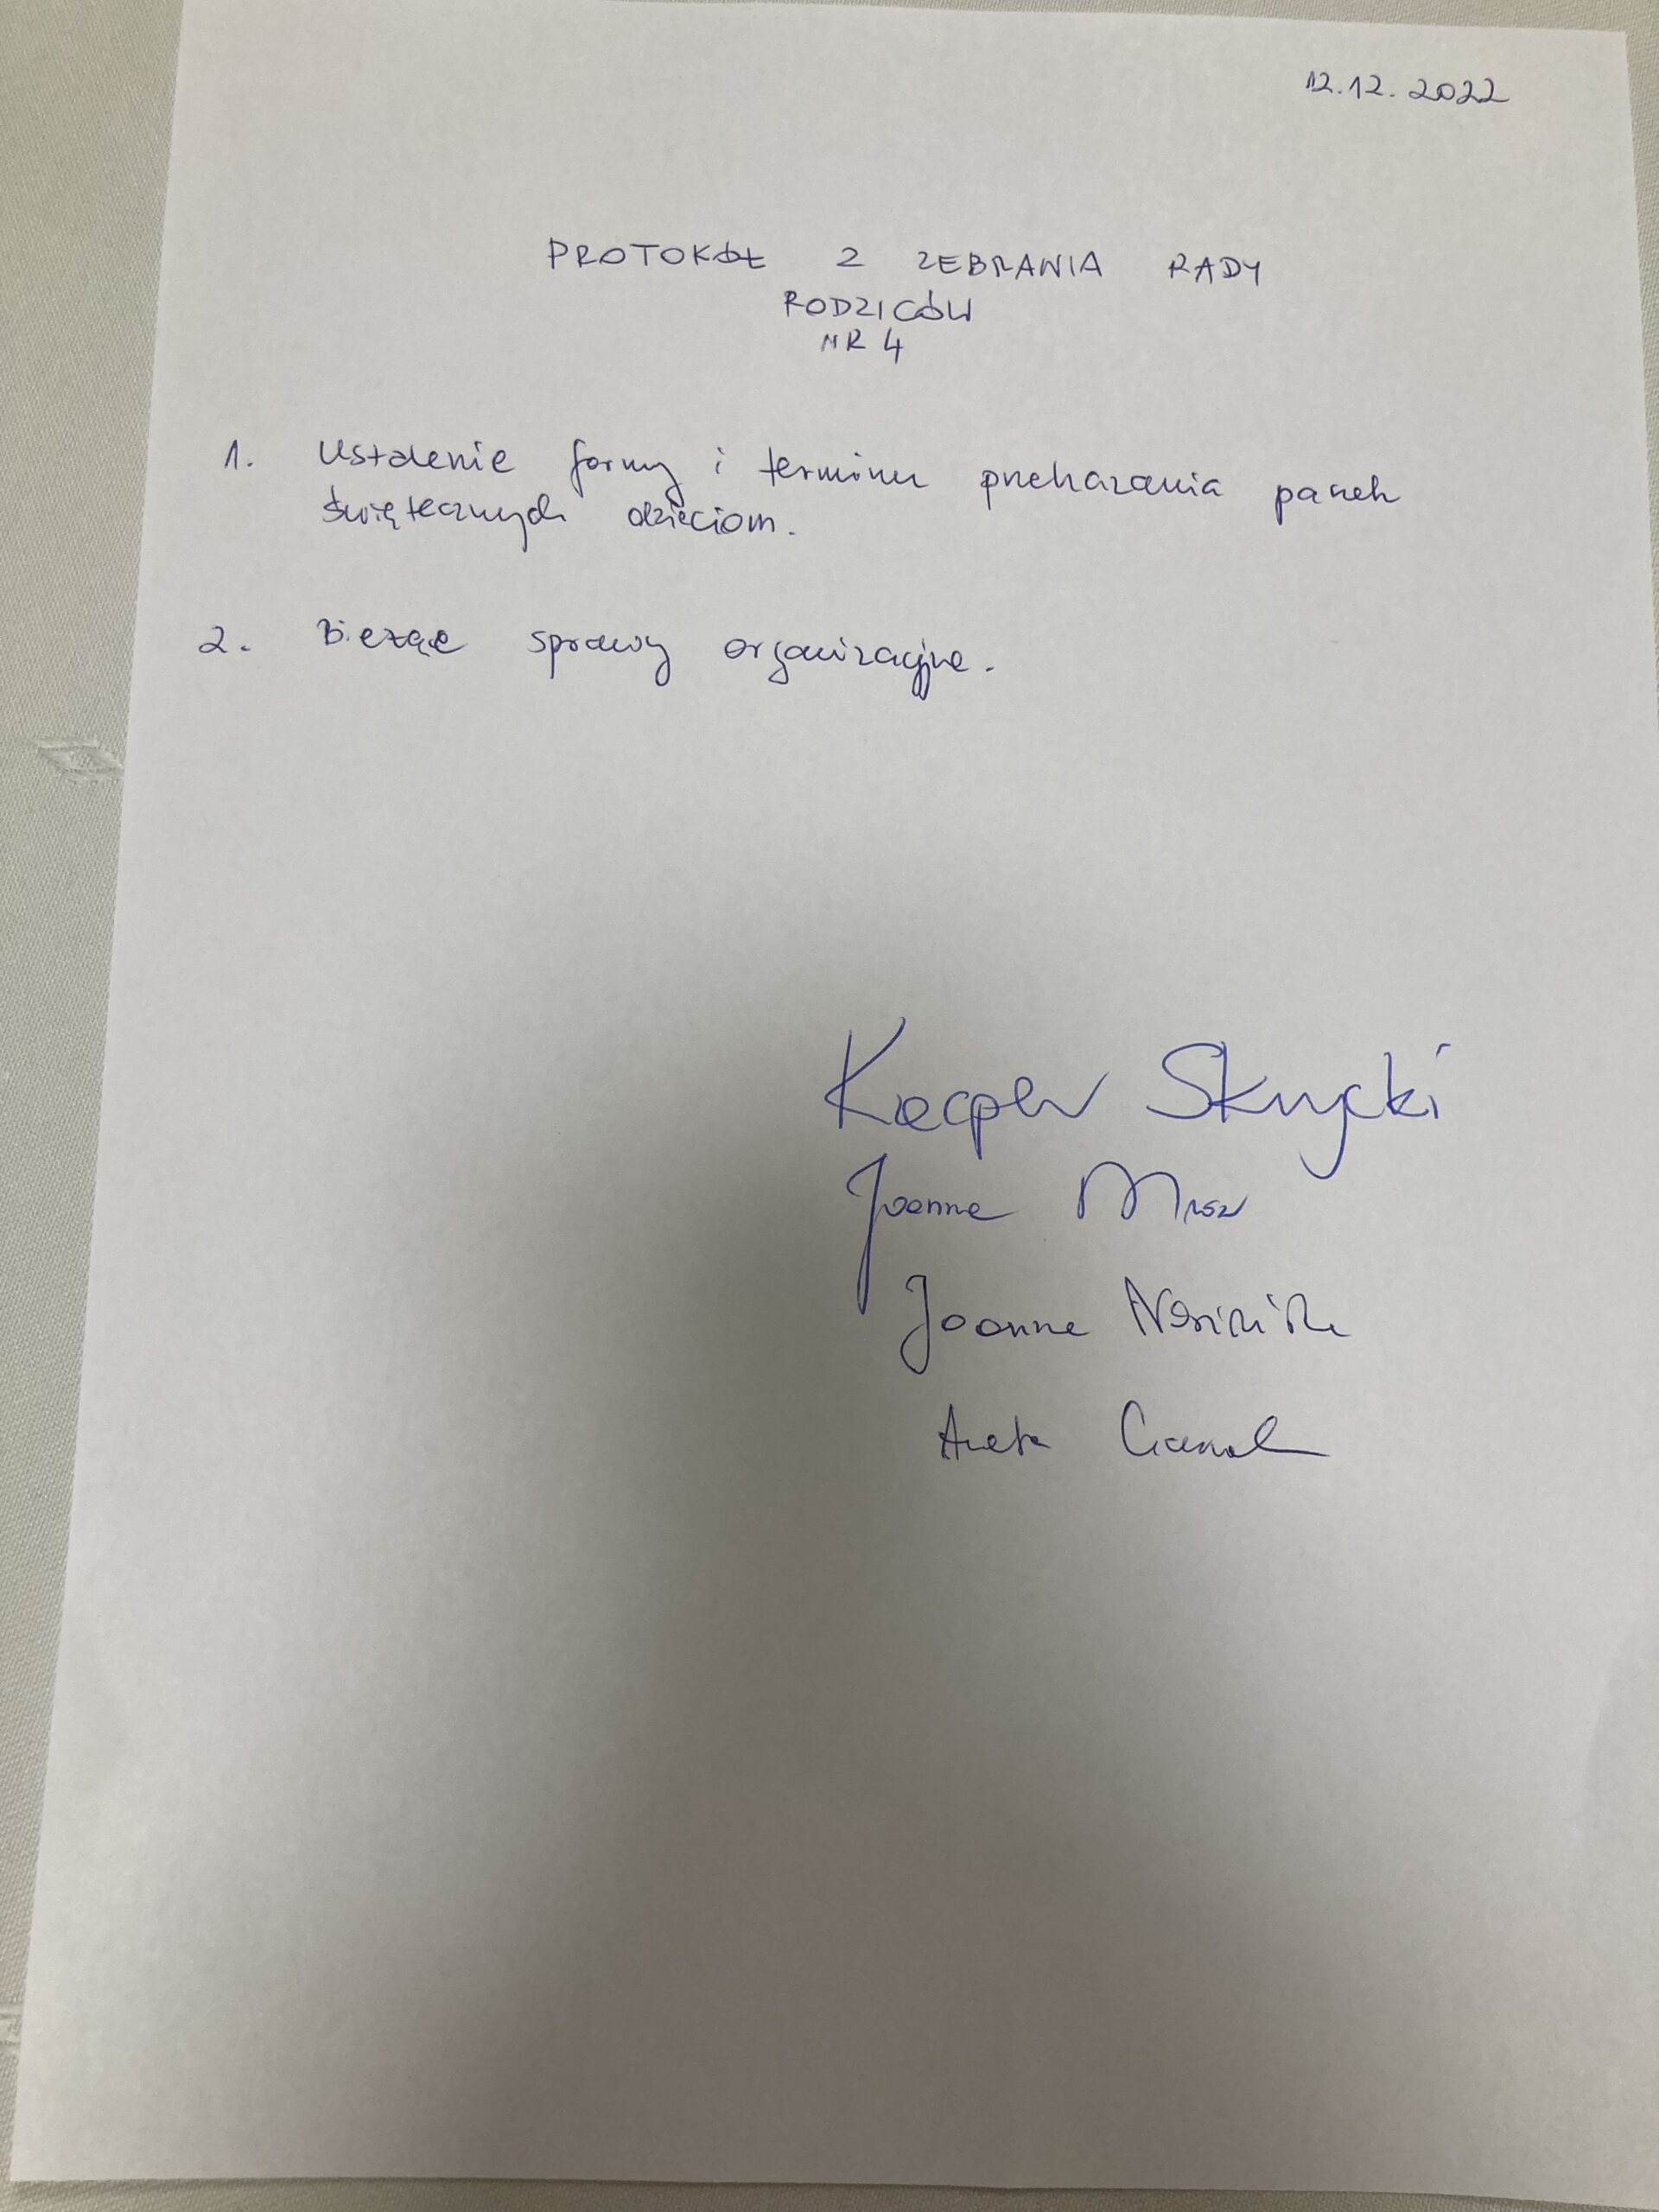 12.12.2022
PROTOKÓŁ Z ZEBRANIA RADY
RODZICÓW
NR 4
1. Ustalenie formy i terminu przekazania paczek
świątecznych dzieciom.
2. Bieżące sprawy organizacyjne.
Kacper Skrycki
Joanna Mroz
Joanna
Aneta